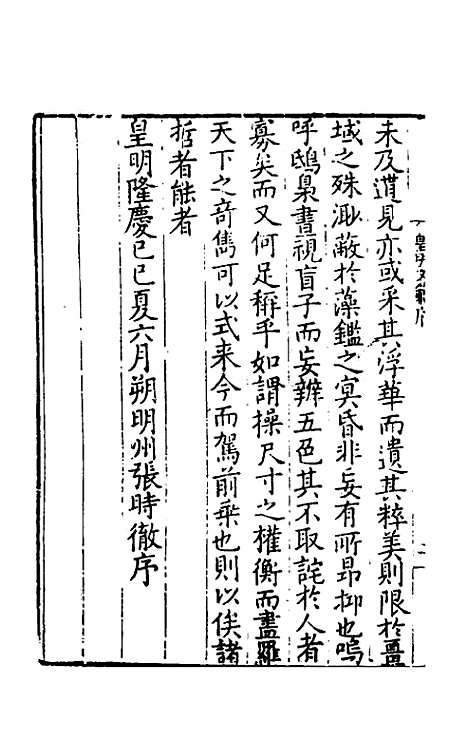 皇明文範序
未及遘見亦或采其浮華而遺其粹美則限於畺
域之殊渺蔽於藻鑑之冥昏非妄有所昻抑也嗚
呼鴟梟晝視盲子而妄辨五色其不取詫於人者
寡矣而又何足稱乎如謂操尺寸之權衡而盡羅
天下之竒雋可以式来今而駕前乗也則以俟諸
哲者能者
皇明隆慶己巳夏六月朔明州張時徹序